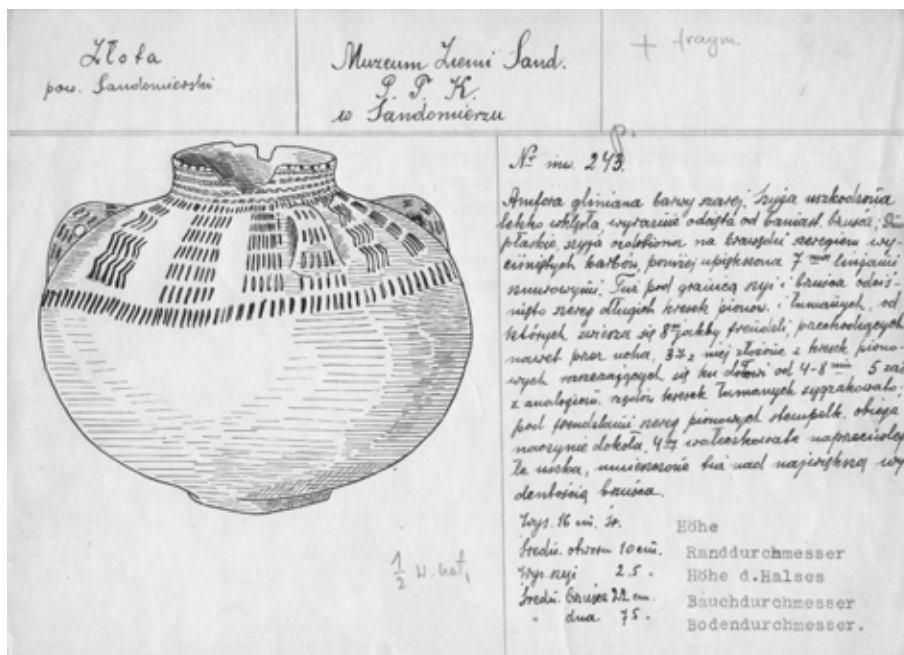 Złota
pow. Sandomierski
Muzeum Ziemi Sand.
P. T. K.
w Sandomierzu
+ fragm.
Nr inw. 243.
Amfora gliniana barwy szarej. Szyja uszkodzona
lekko wklęsła wyraźnie odcięta od baniast. brzuśca; Dno
płaskie, szyja ozdobiona na krawędzi szeregiem wy-
ciśniętych karbów, poniżej upiększona 7 linjami
sznurowymi. Tuż pod granicą szyi i brzuśca odciś-
nięto szereg długich kresek pionow. i łamanych, od
których zwiesza się 8 jakby frendzli, przechodzących
nawet przez ucha, 3 z niej złożone z kresek piono-
wych rozszerzających się ku dołowi od 4-8 5 zaś
z analogicz. rzędów kresek łamanych zygzakowato;
pod frendzlami szereg pionowych stempelk. obiega
naczynie dokoła. 4 wałeczkowate naprzeciwleg
łe uszka, umieszczone tuż nad największą wy
dętością brzuśca.
Wys. 16 cm. Śr.
Średn. otworu 10 cm.
Wys. szyi 2.5 "
Średn. brzuśca 22 cm.
" dna 7.5 "
Höhe
Randdurchmesser
Höhe d.Halses
Bauchdurchmesser
Bodendurchmesser.
1/2 w. nat.